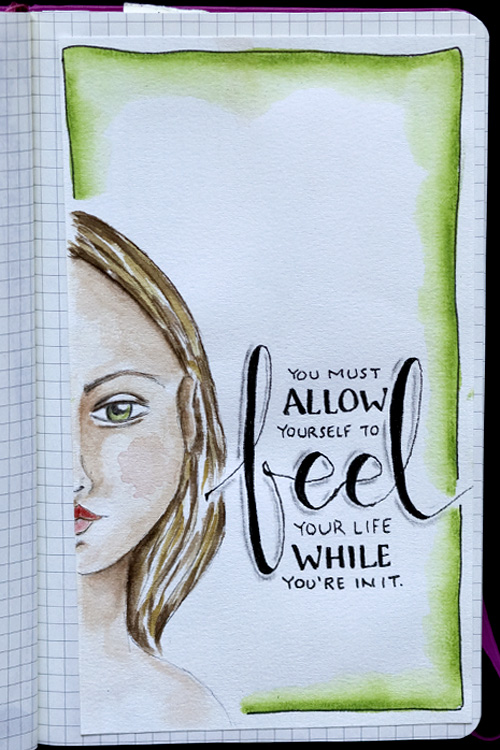 YOU MUST
ALLOW
YOURSELF TO
feel
YOUR LIFE
WHILE
YOU'RE IN IT.